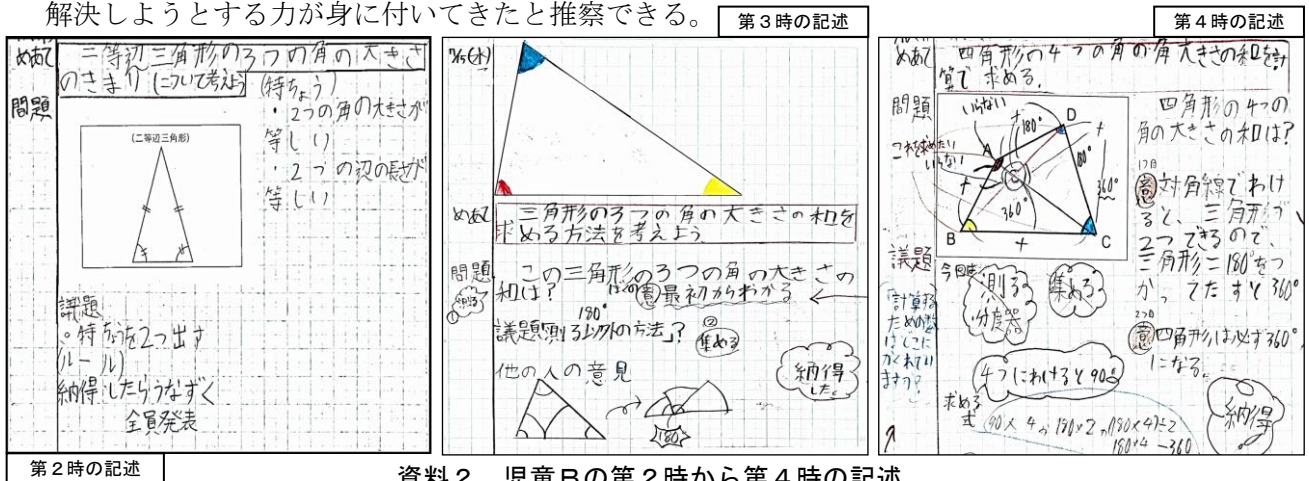 解決しようとする力が身に付いてきたと推察できる。
第3時の記述
第4時の記述
めあて
二等辺三角形の3つの角の大きさ
のきまりについて考えよう
(特ちょう)
問題
・2つの角の大きさが
等しい
・2つの辺の長さが
等しい
(二等辺三角形)
議題
・特ちょうを2つ出す
(ルール)
納得したらうなずく
全員発表
第2時の記述
めあて
三角形の3つの角の大きさの和を
求める方法を考えよう
問題
この三角形の3つの角の大きさの
和は?
最初からわかる
180°
議題
測る以外の方法
②
集める
他の人の意見
納得
した。
180
めあて
四角形の4つの角の角大きさの和を計
算で求める。
問題
いらない
これを求めたい
いらない
四角形の4つの
角の大きさの和は?
A
B
C
D
180°
180°
360°
360°
意
対角線でわけ
ると、三角形が
2つできるので、
三角形=180°をつ
かってたすと360°
意
四角形は必ず360°
になる。
議題
今回は
測る
分度器
集める
計算する
ための数
はどこに
かくれてい
ますか?
4つにわけると90°
求める
式
90×4
180×2
(180×4)÷2
180×4-360
納得
資料2 児童Bの第2時から第4時の記述